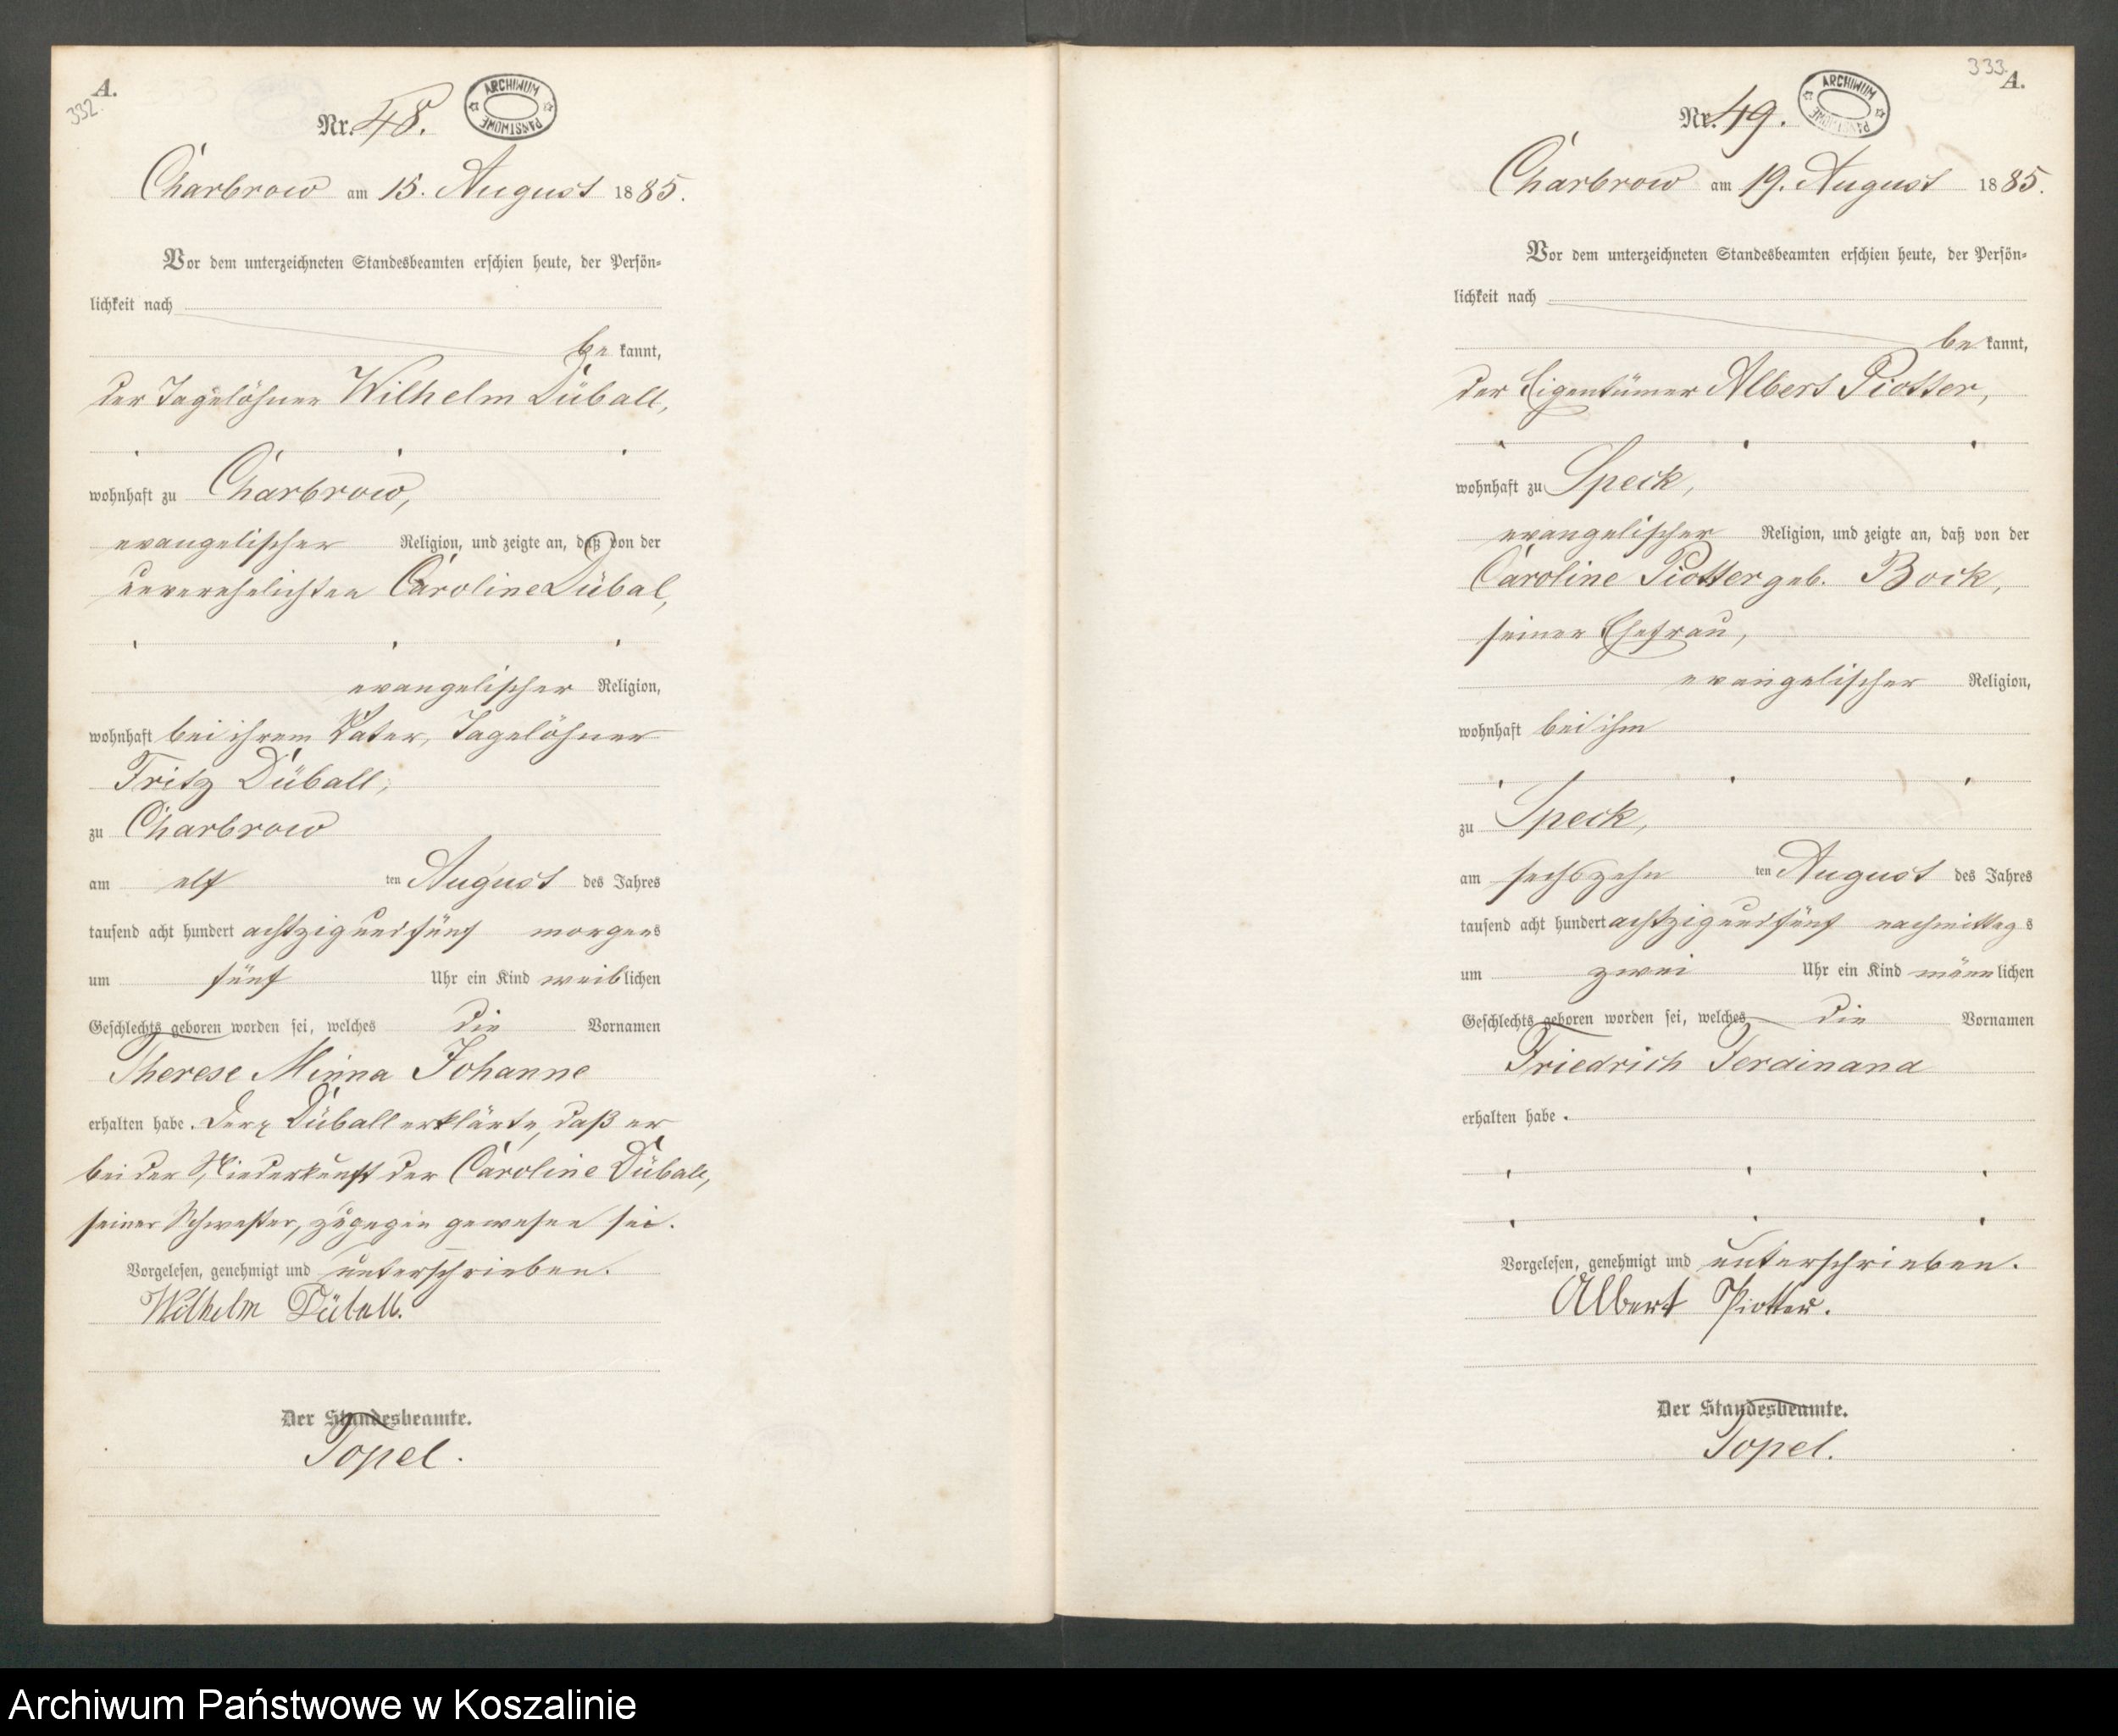 A.
332.
Nr. 48.
ARCHIWUM
PAŃSTWOWE
Charbrow am 15. August 1885.
Vor dem unterzeichneten Standesbeamten erschien heute, der Persön-
lichkeit nach
be kannt,
der Tagelöhner Wilhelm Düball,
wohnhaft zu Charbrow,
evangelischer Religion, und zeigte an, daß von der
unverehelichten Caroline Dübal,
evangelischer Religion,
wohnhaft bei ihrem Vater, Tagelöhner
Fritz Düball,
zu Charbrow
am elf ten August des Jahres
tausend acht hundert achtzig und fünf morgens
um fünf Uhr ein Kind weiblichen
Geschlechts geboren worden sei, welches die Vornamen
Therese Minna Johanne
erhalten habe. Der Düball erklärte, daß er
bei der Niederkunft der Caroline Düball,
seiner Schwester, zugegen gewesen sei.
Vorgelesen, genehmigt und unterschrieben.
Wilhelm Düball.
Der Standesbeamte.
Topel.
333.
A.
Nr. 49.
ARCHIWUM
PAŃSTWOWE
Charbrow am 19. August 1885.
Vor dem unterzeichneten Standesbeamten erschien heute, der Persön-
lichkeit nach
be kannt,
der Eigentümer Albert Piotter,
wohnhaft zu Speck,
evangelischer Religion, und zeigte an, daß von der
Caroline Piotter geb. Bock,
seiner Ehefrau,
evangelischer Religion,
wohnhaft bei ihm
zu Speck,
am sechszehn ten August des Jahres
tausend acht hundert achtzig und fünf nachmittags
um zwei Uhr ein Kind männlichen
Geschlechts geboren worden sei, welches die Vornamen
Friedrich Ferdinand
erhalten habe.
Vorgelesen, genehmigt und unterschrieben.
Albert Piotter.
Der Standesbeamte.
Topel.
Archiwum Państwowe w Koszalinie